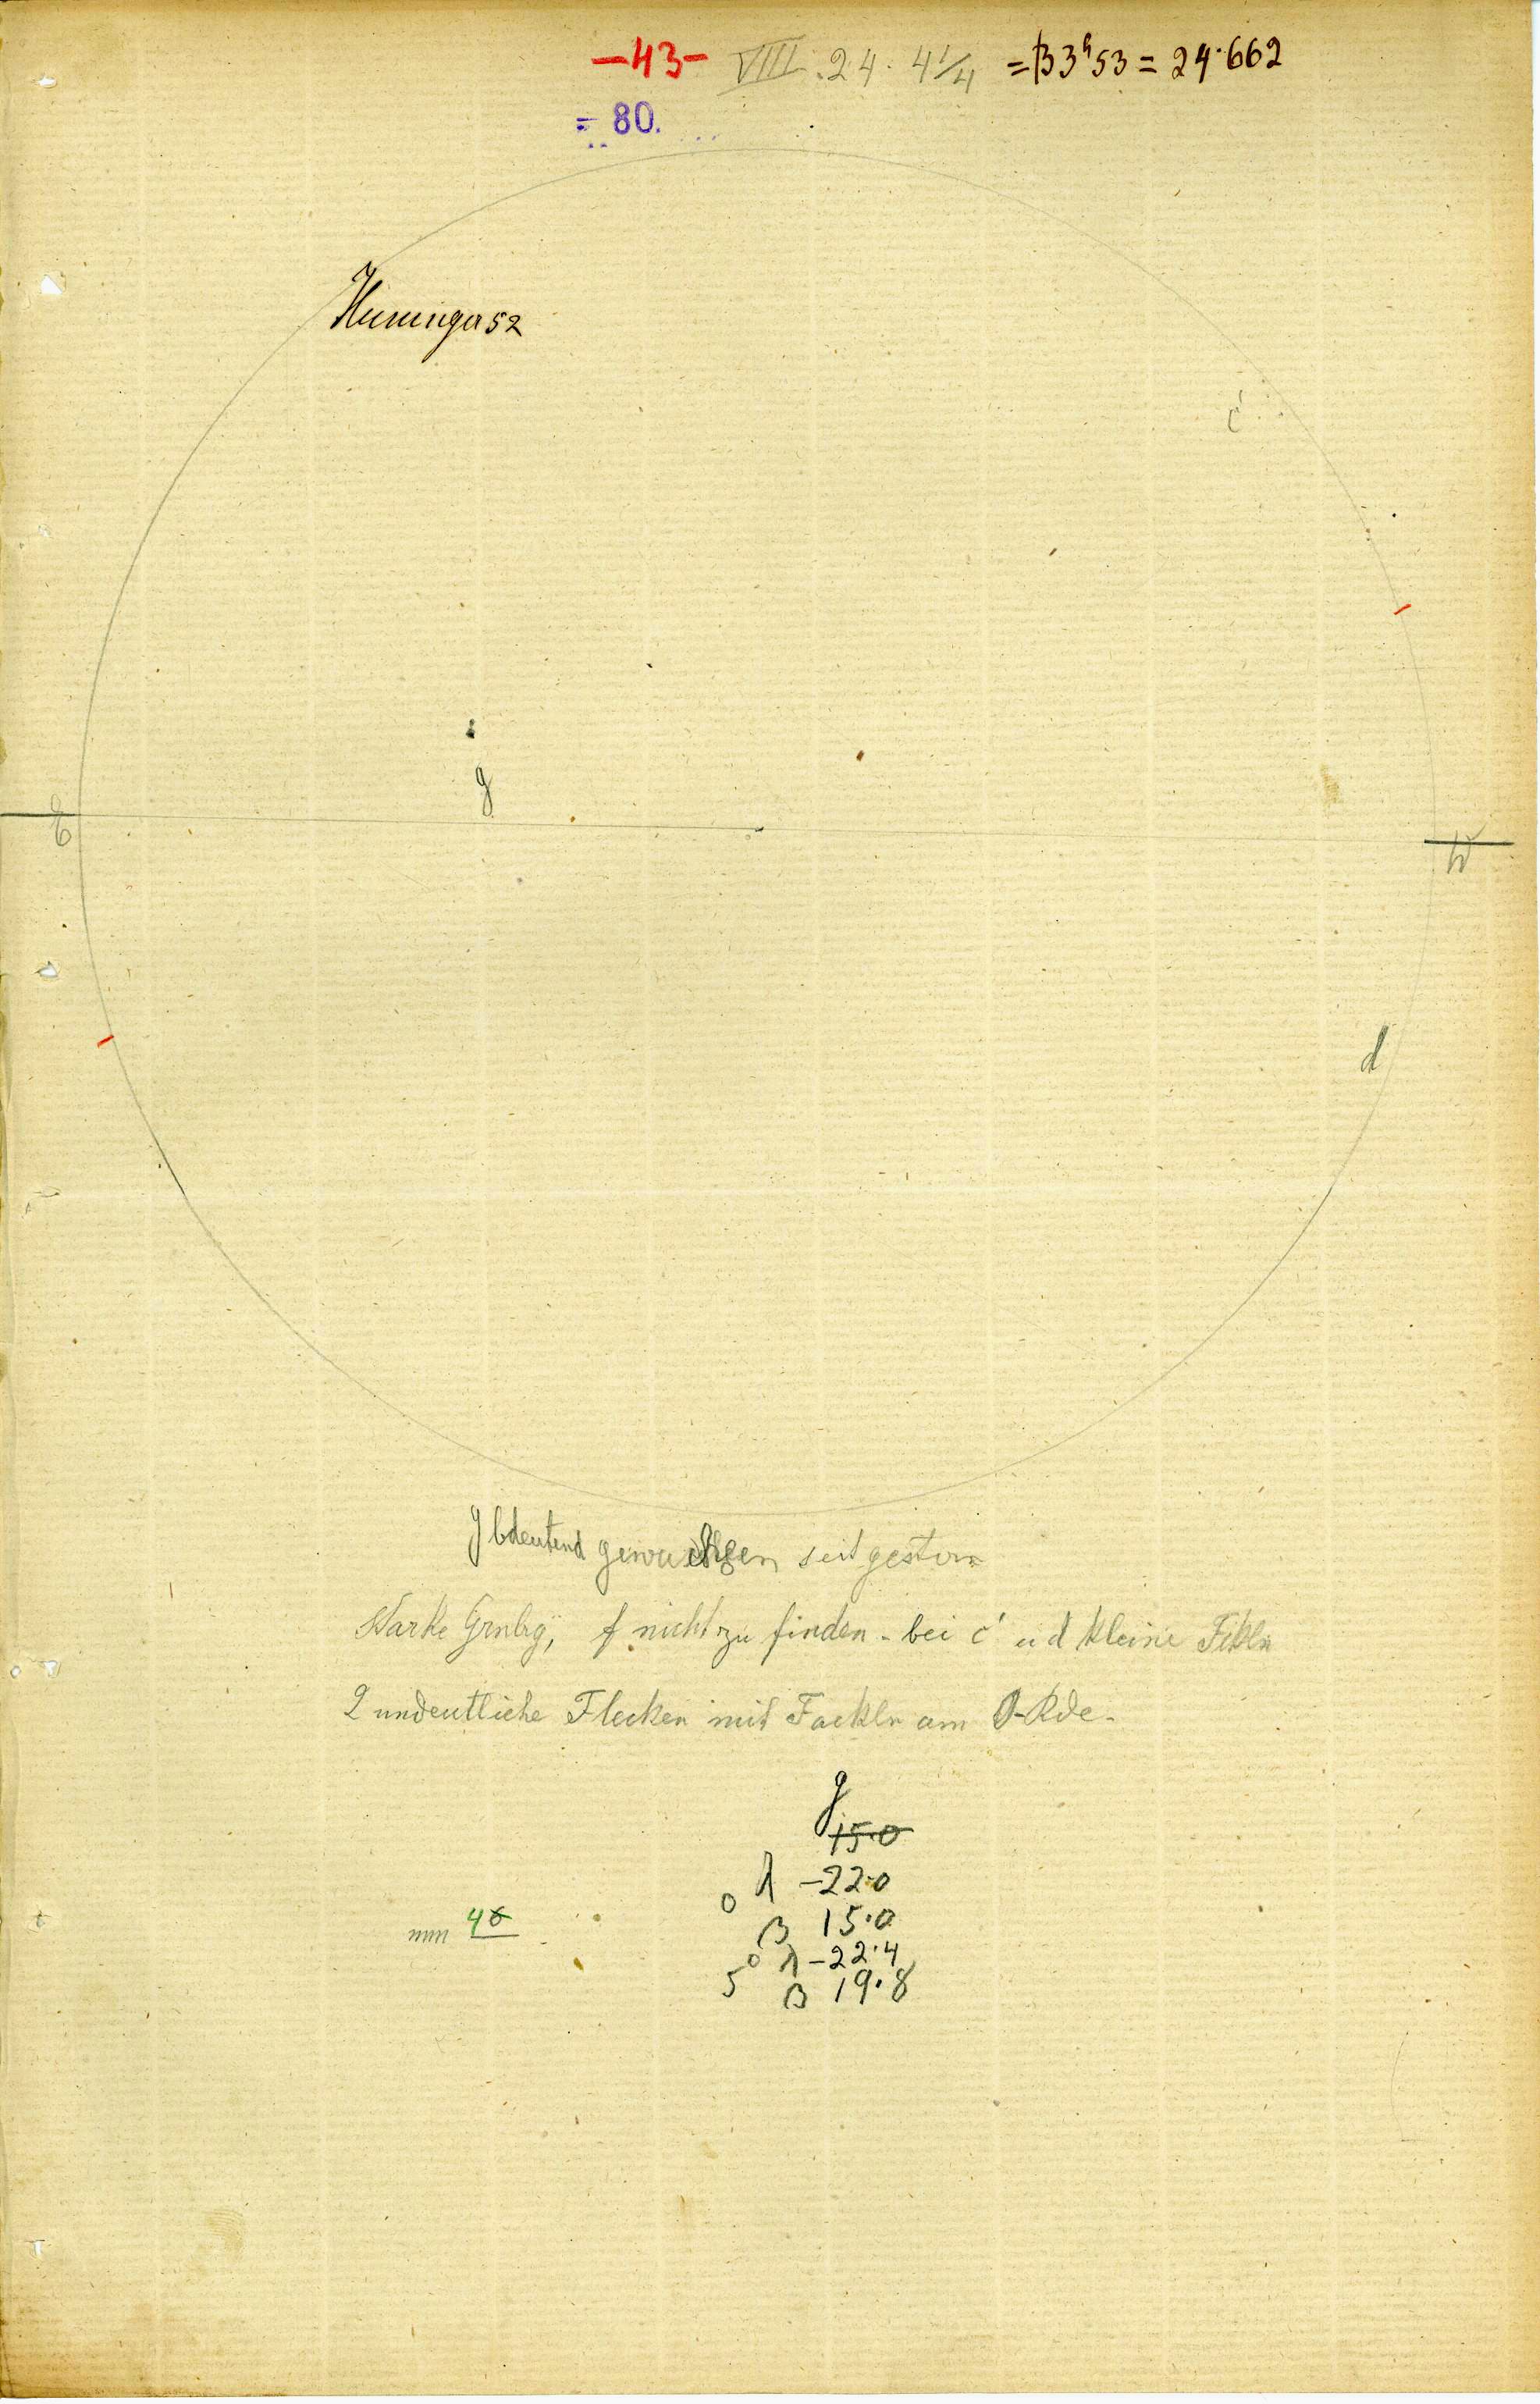 -43- VIII. 24. 4 1/4 = 3ʰ53 = 24.662
= 80.
c'
g
W
d
g bdeutend gewachsen seit gestern
Starke Grnlrg, f nicht zu finden - bei c' u d kleine Fkln
2 undeutliche Flecken mit Fackln am O-Rde.
g
15.0
0 λ -22.0
β 15.0
50 λ -22.4
β 19.8
mm 46